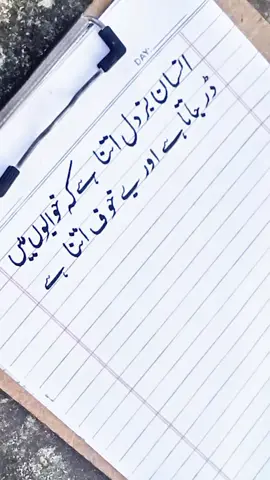 DAY:
انسان بزدل اتنا ہے کہ خوابوں میں
ڈر جاتا ہے اور بے خوف اتنا ہے